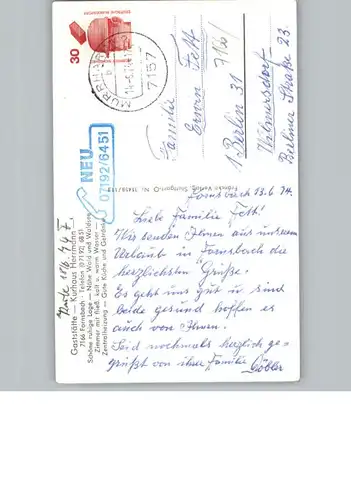 30
DEUTSCHE BUNDESPOST
MURRHARDT
14.-6.74
7157
Familie
Erwin Fett
1 Berlin 31
Wilmersdorf
Berliner Straße 23
NEU
07192/6451
Gaststätte — Kurhaus Herrmann
7166 Fornsbach · Telefon (07192) 6851
Schöne ruhige Lage — Nähe Wald und Wiesen
Zimmer mit fließ. kalt u. warm Wasser —
Zentralheizung — Gute Küche und Getränke
Fornsbach 13.6.74.
Liebe Familie Fett!
Wir senden Ihnen aus unserem
Urlaub in Fornsbach die
herzlichsten Grüße.
Es geht uns gut u. sind
beide gesund hoffen es
auch von Ihnen.
Seid nochmals herzlich ge-
grüßt von ihrer Familie Göbler